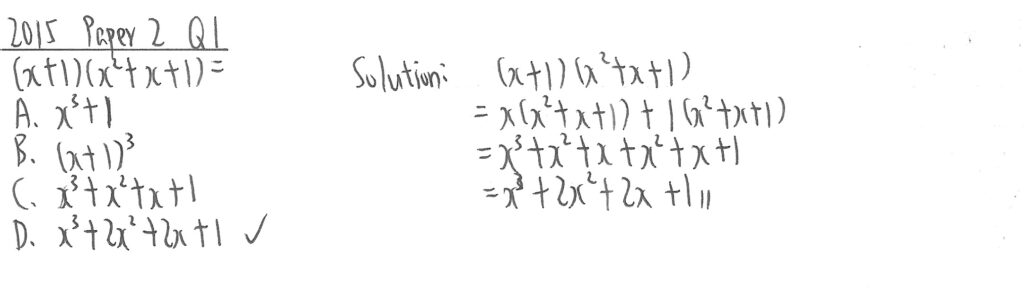 2015 Paper 2 Q1
(x+1)(x²+x+1)=
A. x³+1
B. (x+1)³
C. x³+x²+x+1
D. x³+2x²+2x+1 ✓
Solution: (x+1)(x²+x+1)
= x(x²+x+1) + 1(x²+x+1)
= x³+x²+x+x²+x+1
= x³+2x²+2x+1